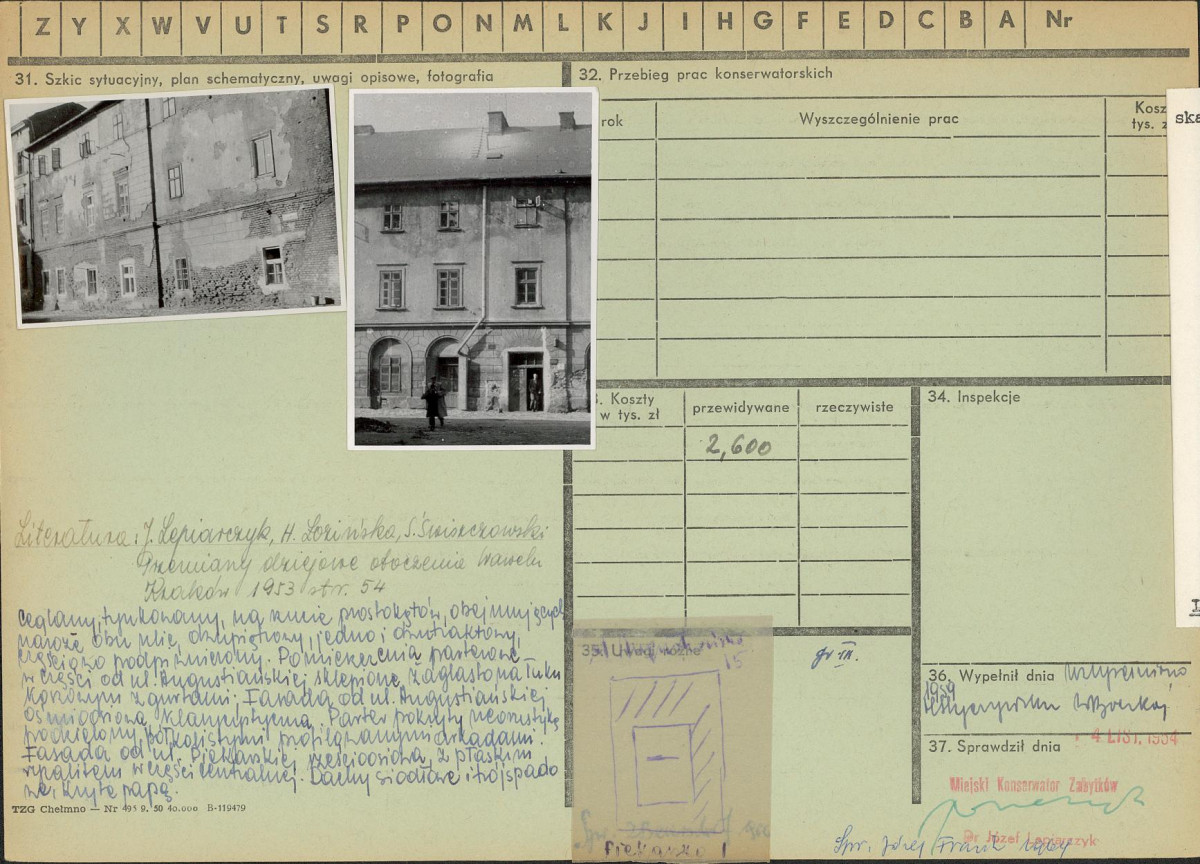 Z Y X W V U T S R P O N M L K J I H G F E D C B A Nr
31. Szkic sytuacyjny, plan schematyczny, uwagi opisowe, fotografia
32. Przebieg prac konserwatorskich
rok
Wyszczególnienie prac
Kosz
tys. z
ska
Koszty
w tys. zł
przewidywane
rzeczywiste
2,600
34. Inspekcje
Literatura: J. Lepiarczyk, H. Łozińska, S. Świszczowski
Przemiany dziejowe otoczenia Wawelu
Kraków 1953 str. 54
ceglany, tynkowany, na rzucie prostokątów, obejmujących
naroże obu ulic, dwupiętrowy, jedno i dwutraktowy,
częściowo podpiwniczony. Pomieszczenia parterowe
w części od ul. Augustiańskiej sklepione żaglasto na łuku
koszowym z gurtami. Fasada od ul. Augustiańskiej
ośmioosiowa, klasycystyczna. Parter pokryty rustyką
podzielony, półkolistymi profilowanymi arkadami.
Fasada od ul. Piekarskiej sześcioosiowa, z płaskim
ryzalitem w części centralnej. Dachy siodłowe i trójspado
we, kryte papą.
TZG Chełmno — Nr 495 9. 50 40.000 B-119479
35. Uwagi różne
15
Piekarska 1
36. Wypełnił dnia
1959
37. Sprawdził dnia
4 LIST. 1954
Miejski Konserwator Zabytków
Dr Józef Lepiarczyk
Spr. Józef Frazik 1964